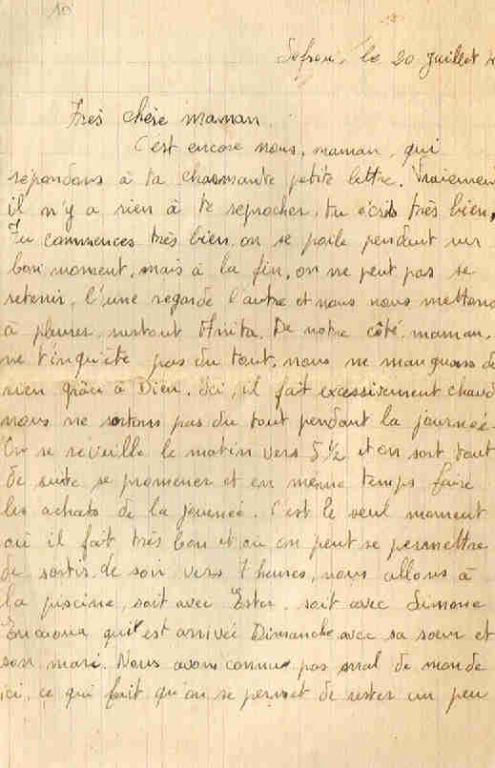 10
Sefrou, le 20 Juillet
Très chère maman
C'est encore nous, maman, qui
répondons à ta charmante petite lettre. Vraiment
il n'y a rien à te reprocher, tu écris très bien,
Tu commences très bien, on se poile pendant un
bon moment, mais à la fin, on ne peut pas se
retenir, l'une regarde l'autre et nous nous mettons
à pleurer, surtout Anita. De notre côté, maman,
ne t'inquiète pas du tout, nous ne manquons de
rien grâce à Dieu. Ici, il fait excessivement chaud
nous ne sortons pas du tout pendant la journée.
On se réveille le matin vers 5 ½ et on sort tout
de suite se promener et en même temps faire
les achats de la journée. C'est le seul moment
où il fait très bon et où on peut se permettre
de sortir, de soir vers 7 heures, nous allons à
la piscine, soit avec Ester, soit avec Simone
qui est arrivée Dimanche avec sa soeur et
son mari. Nous avons connu pas mal de monde
ici, ce qui fait qu'on se permet de rester un peu